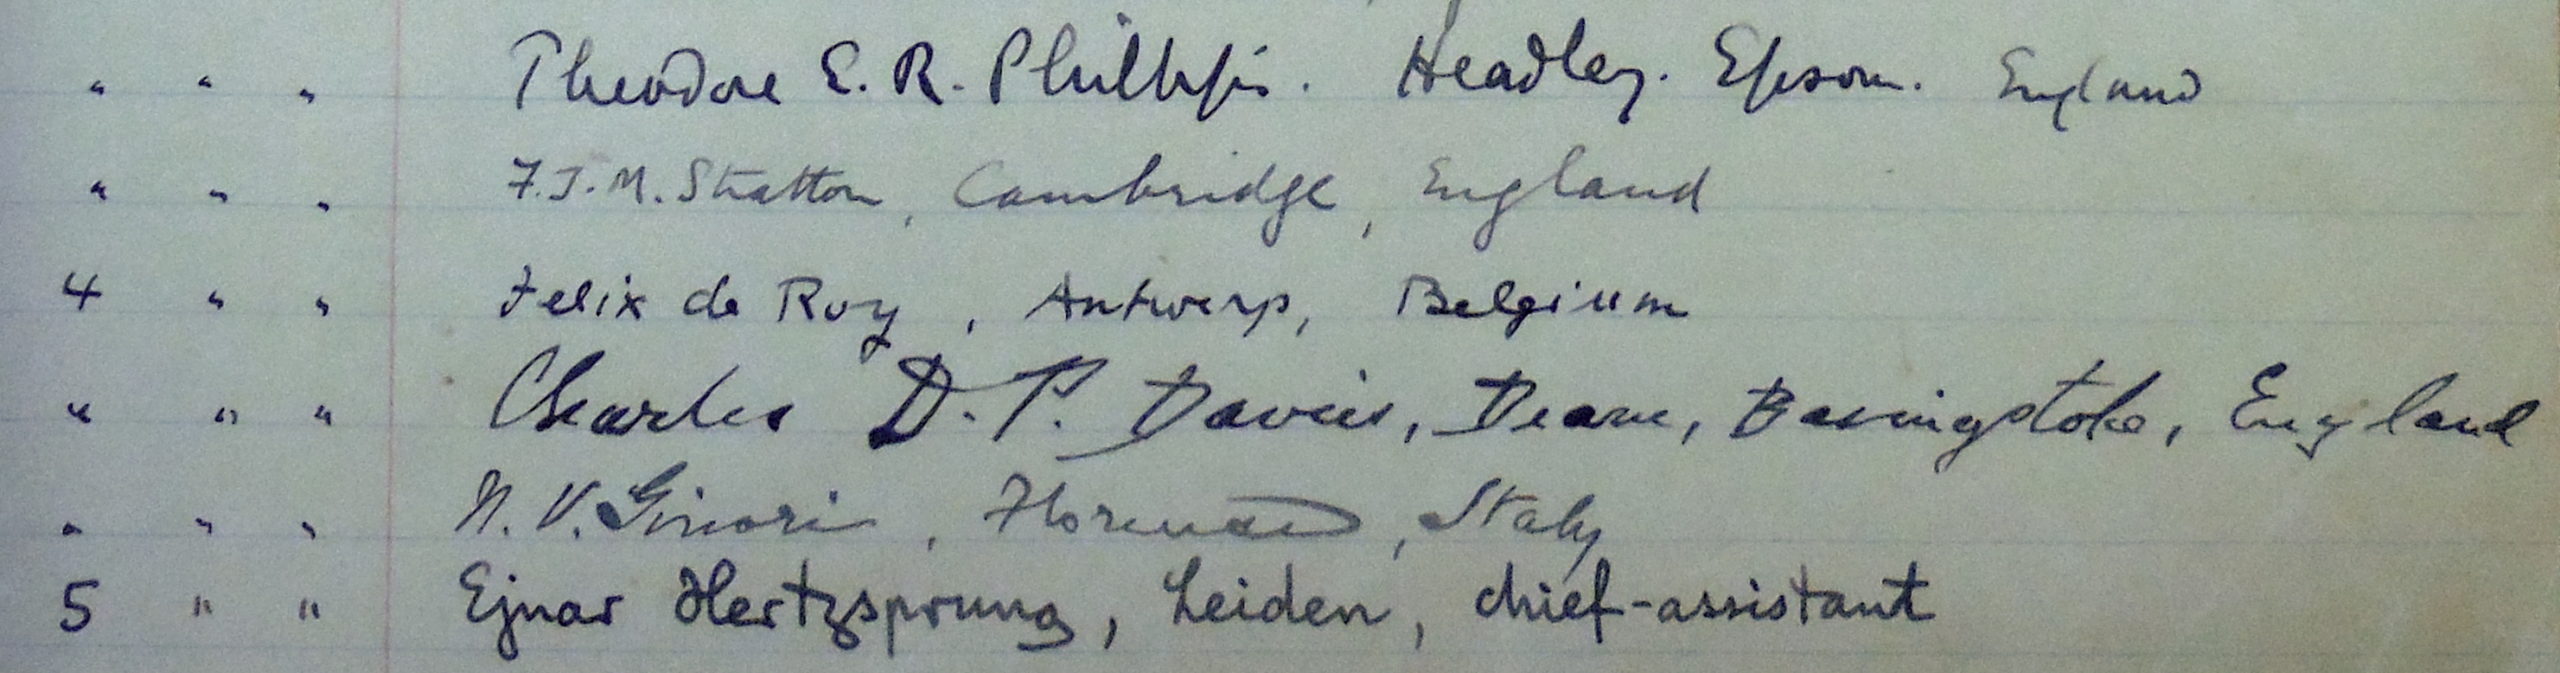 " " " Theodore E. R. Phillips. Headley. Epsom. England
" " " F.J.M. Stratton, Cambridge, England
4 " " Felix de Roy, Antwerp, Belgium
" " " Charles D. P. Davies, Deane, Basingstoke, England
" " " N. V. Ginori, Italy
5 " " Ejnar Hertzsprung, Leiden, chief-assistant